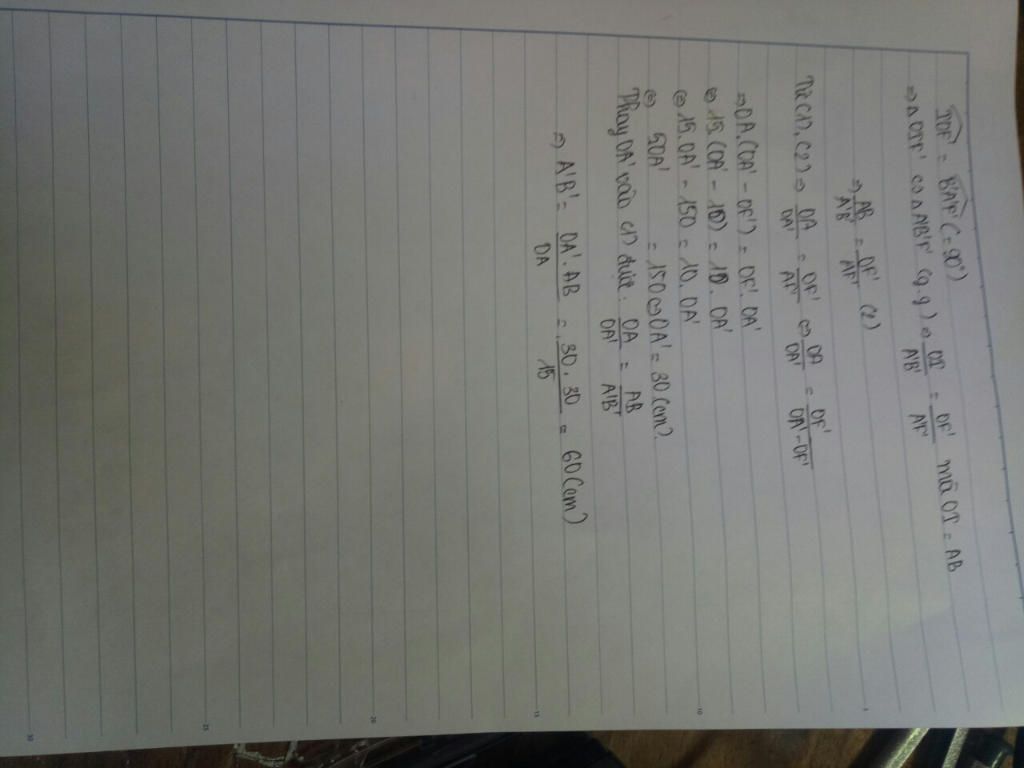 IOF' = B'A'F' (= 90°)
⇒ Δ OIF' ∽ Δ A'B'F' (g.g) ⇒ OI/A'B' = OF'/A'F' mà OI = AB
⇒ AB/A'B' = OF'/A'F' (2)
Từ (1), (2) ⇒ OA/OA' = OF'/A'F' ⇔ OA/OA' = OF'/OA'-OF'
⇒ OA.(OA' - OF') = OF'.OA'
⇔ 15.(OA' - 10) = 10.OA'
⇔ 15.OA' - 150 = 10.OA'
⇔ 5OA' = 150 ⇔ OA' = 30(cm).
Thay OA' vào (1) được: OA/OA' = AB/A'B'
⇒ A'B' = OA'.AB/OA = 30.30/15 = 60(cm)
5
10
15
20
25
30